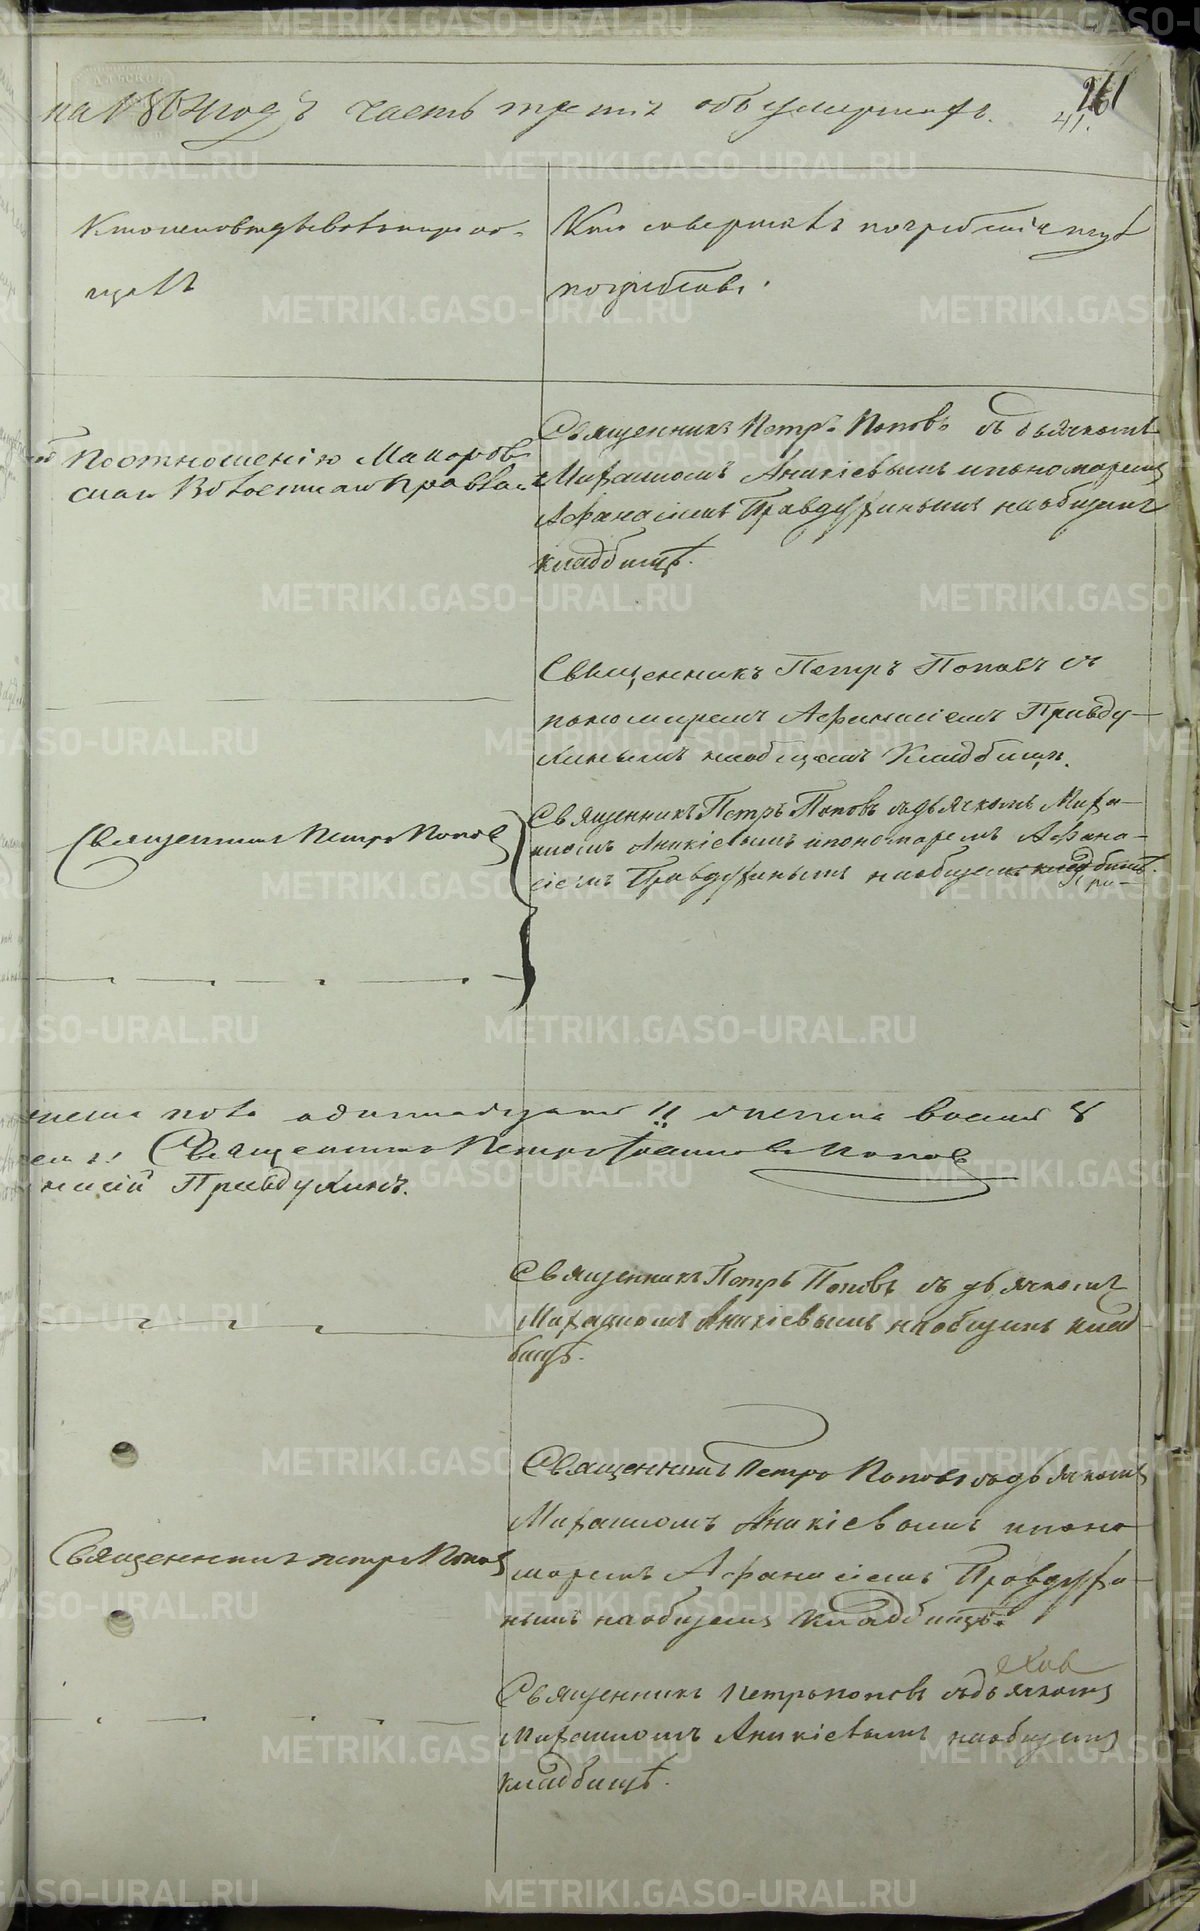 на 1864 годъ часть третiя объ умершихъ.
261
41.
Кто исповѣдывалъ и прiоб-
щалъ
Кто совершалъ погребенiе и гдѣ
погребены.
По отношенiю Макаров
скаго Волостнаго Правле
Священникъ Петръ Поповъ съ дьячкомъ
Михаиломъ Аникiевымъ и пономаремъ
Афанасiемъ Правдухинымъ на общемъ
кладбищѣ.
Священникъ Петръ Поповъ съ
пономаремъ Афанасiемъ Правду-
хинымъ на общемъ Кладбищѣ.
Священникъ Петръ Попов
Священникъ Петръ Поповъ съ дьячкомъ Миха-
иломъ Аникiевымъ и пономаремъ Афана-
сiемъ Правдухинымъ на общемъ кладбищѣ.
При-
пола одиннадцать 11 женска восемь 8
Священникъ Петръ Iоанновъ Попов
насiй Правдухинъ.
Священникъ Петръ Поповъ съ дьячкомъ
Михаиломъ Аникiевымъ на общемъ клад
бищѣ.
Священникъ Петръ Попов
Священникъ Петръ Поповъ съ дьячкомъ
Михаиломъ Аникiевымъ и поно
маремъ Афанасiемъ Правдухи-
нымъ на общемъ Кладбищѣ.
Священникъ Петръ Поповъ съ дьячкомъ
Михаиломъ Аникiевымъ на общемъ
кладбищѣ.
METRIKI.GASO-URAL.RU